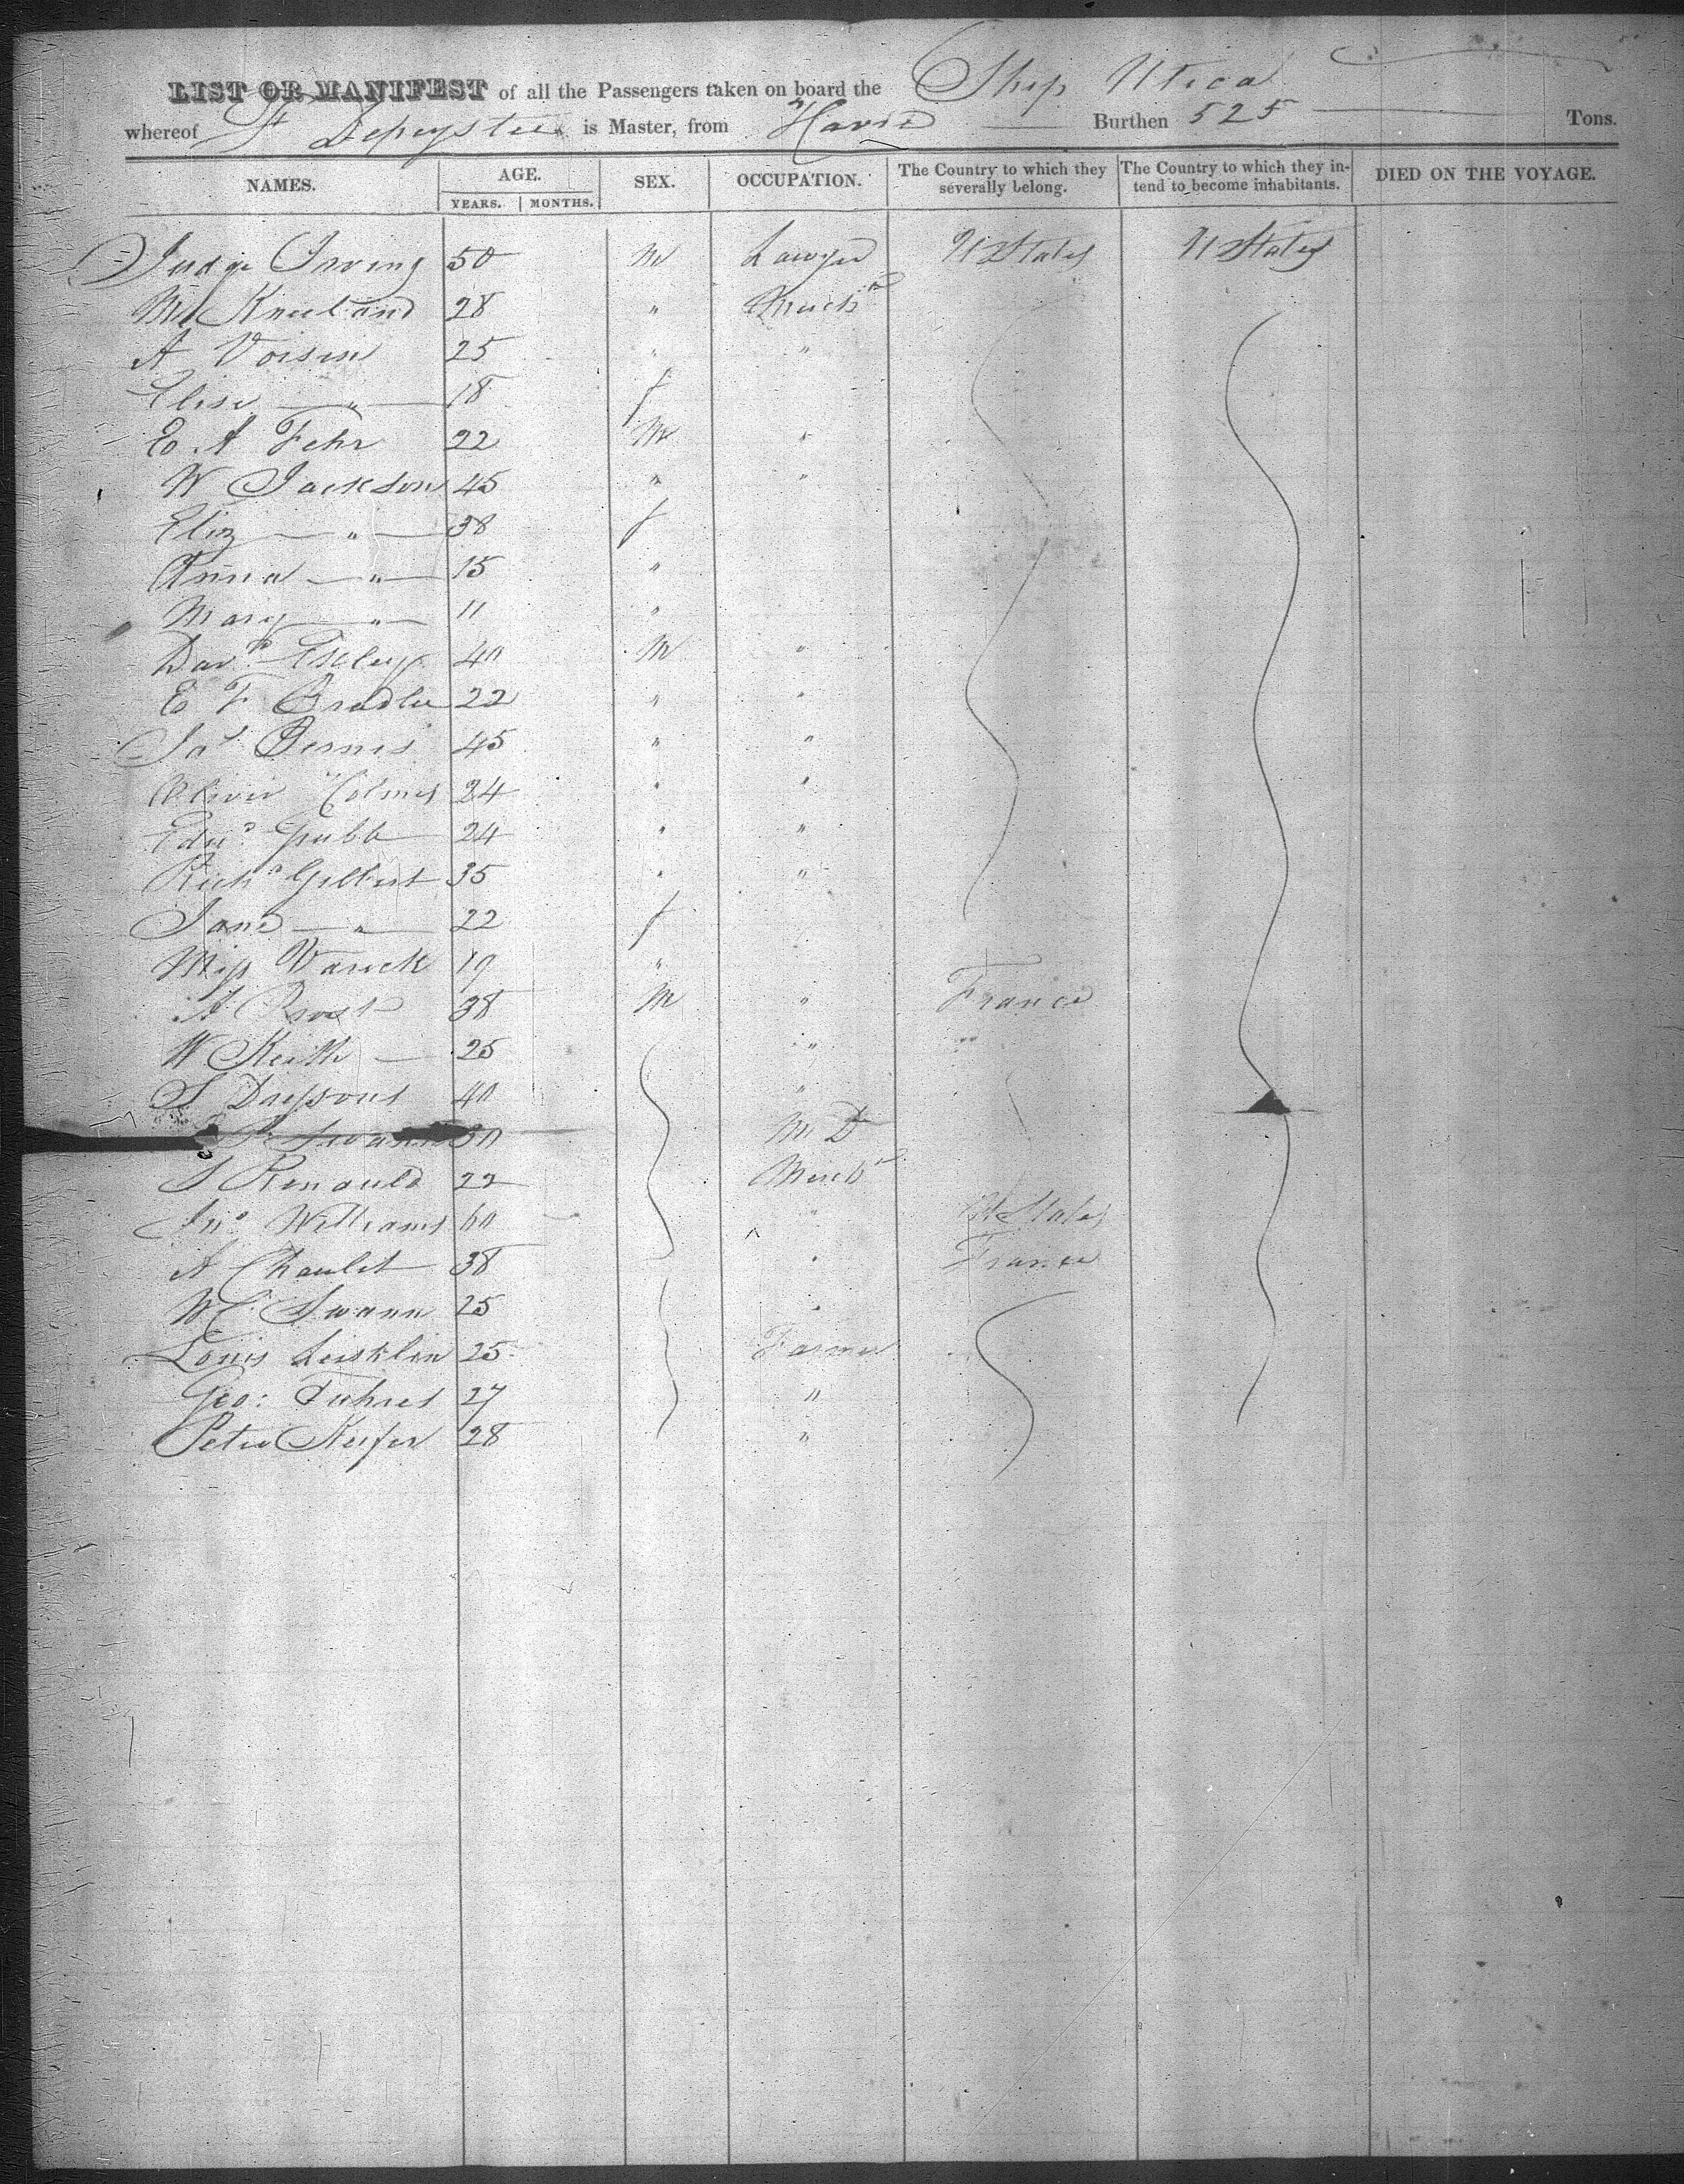 LIST OR MANIFEST of all the Passengers taken on board the Ship Utica
whereof F Depeyster is Master, from Havre Burthen 525 Tons.
NAMES. AGE. SEX. OCCUPATION. The Country to which they severally belong. The Country to which they intend to become inhabitants. DIED ON THE VOYAGE.
YEARS. MONTHS.
Judge Irving 50 M Lawyer U States U States
Mr Kneeland 28 " Merch.t
A Voisin 25 " "
Elise — " — 18 f
E. A Fehr 22 M "
W Jackson 45 " "
Eliz — " — 38 f
Anna — " — 15 "
Mary — " — 11 "
Dav.d 40 M "
E F Bradlee 22 " "
Ja.s 45 " "
Oliver Holmes 24 " "
Edw.d Grubb 24 " "
Rich.d Gilbert 35 " "
Jane — " — 22 f
Miss Varick 19 "
A Prost 38 M " France
W Keith — 25 "
S 40 "
30 M D
S Renauld 22 Merch.t
Jn.o Williams 60 " U States
A Chaulet 38 " France
W C Swann 25 "
Louis 25 Farmer
Geo: 27 "
Peter Keifer 28 "